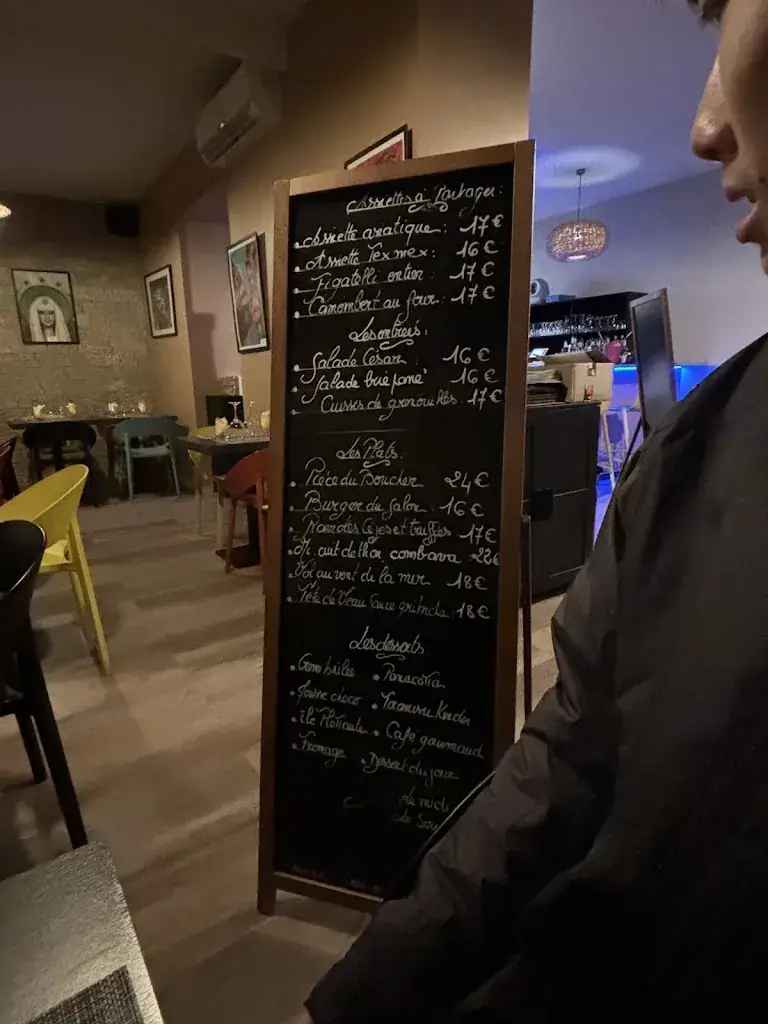 Assiettes à Partager:
• Assiette asiatique: 17€
• Assiette Tex mex: 16€
• Figatelli entier: 17€
• Camembert au four: 17€
Les entrées:
• Salade César 16€
• Salade brie pané 16€
• Cuisses de grenouilles 17€
Les Plats:
• Pièce du Boucher 24€
• Burger du Salon 16€
cèpes et truffes 17€
• Mi cuit de thon combava 22€
• Vol au vent de la mer 18€
• Tête de Veau Sauce gribiche 18€
Les desserts
• Creme brulée • Panacotta
• Mousse choco • Tiramisu Kinder
• île flottante • Café gourmand
• Fromage • Dessert du jour